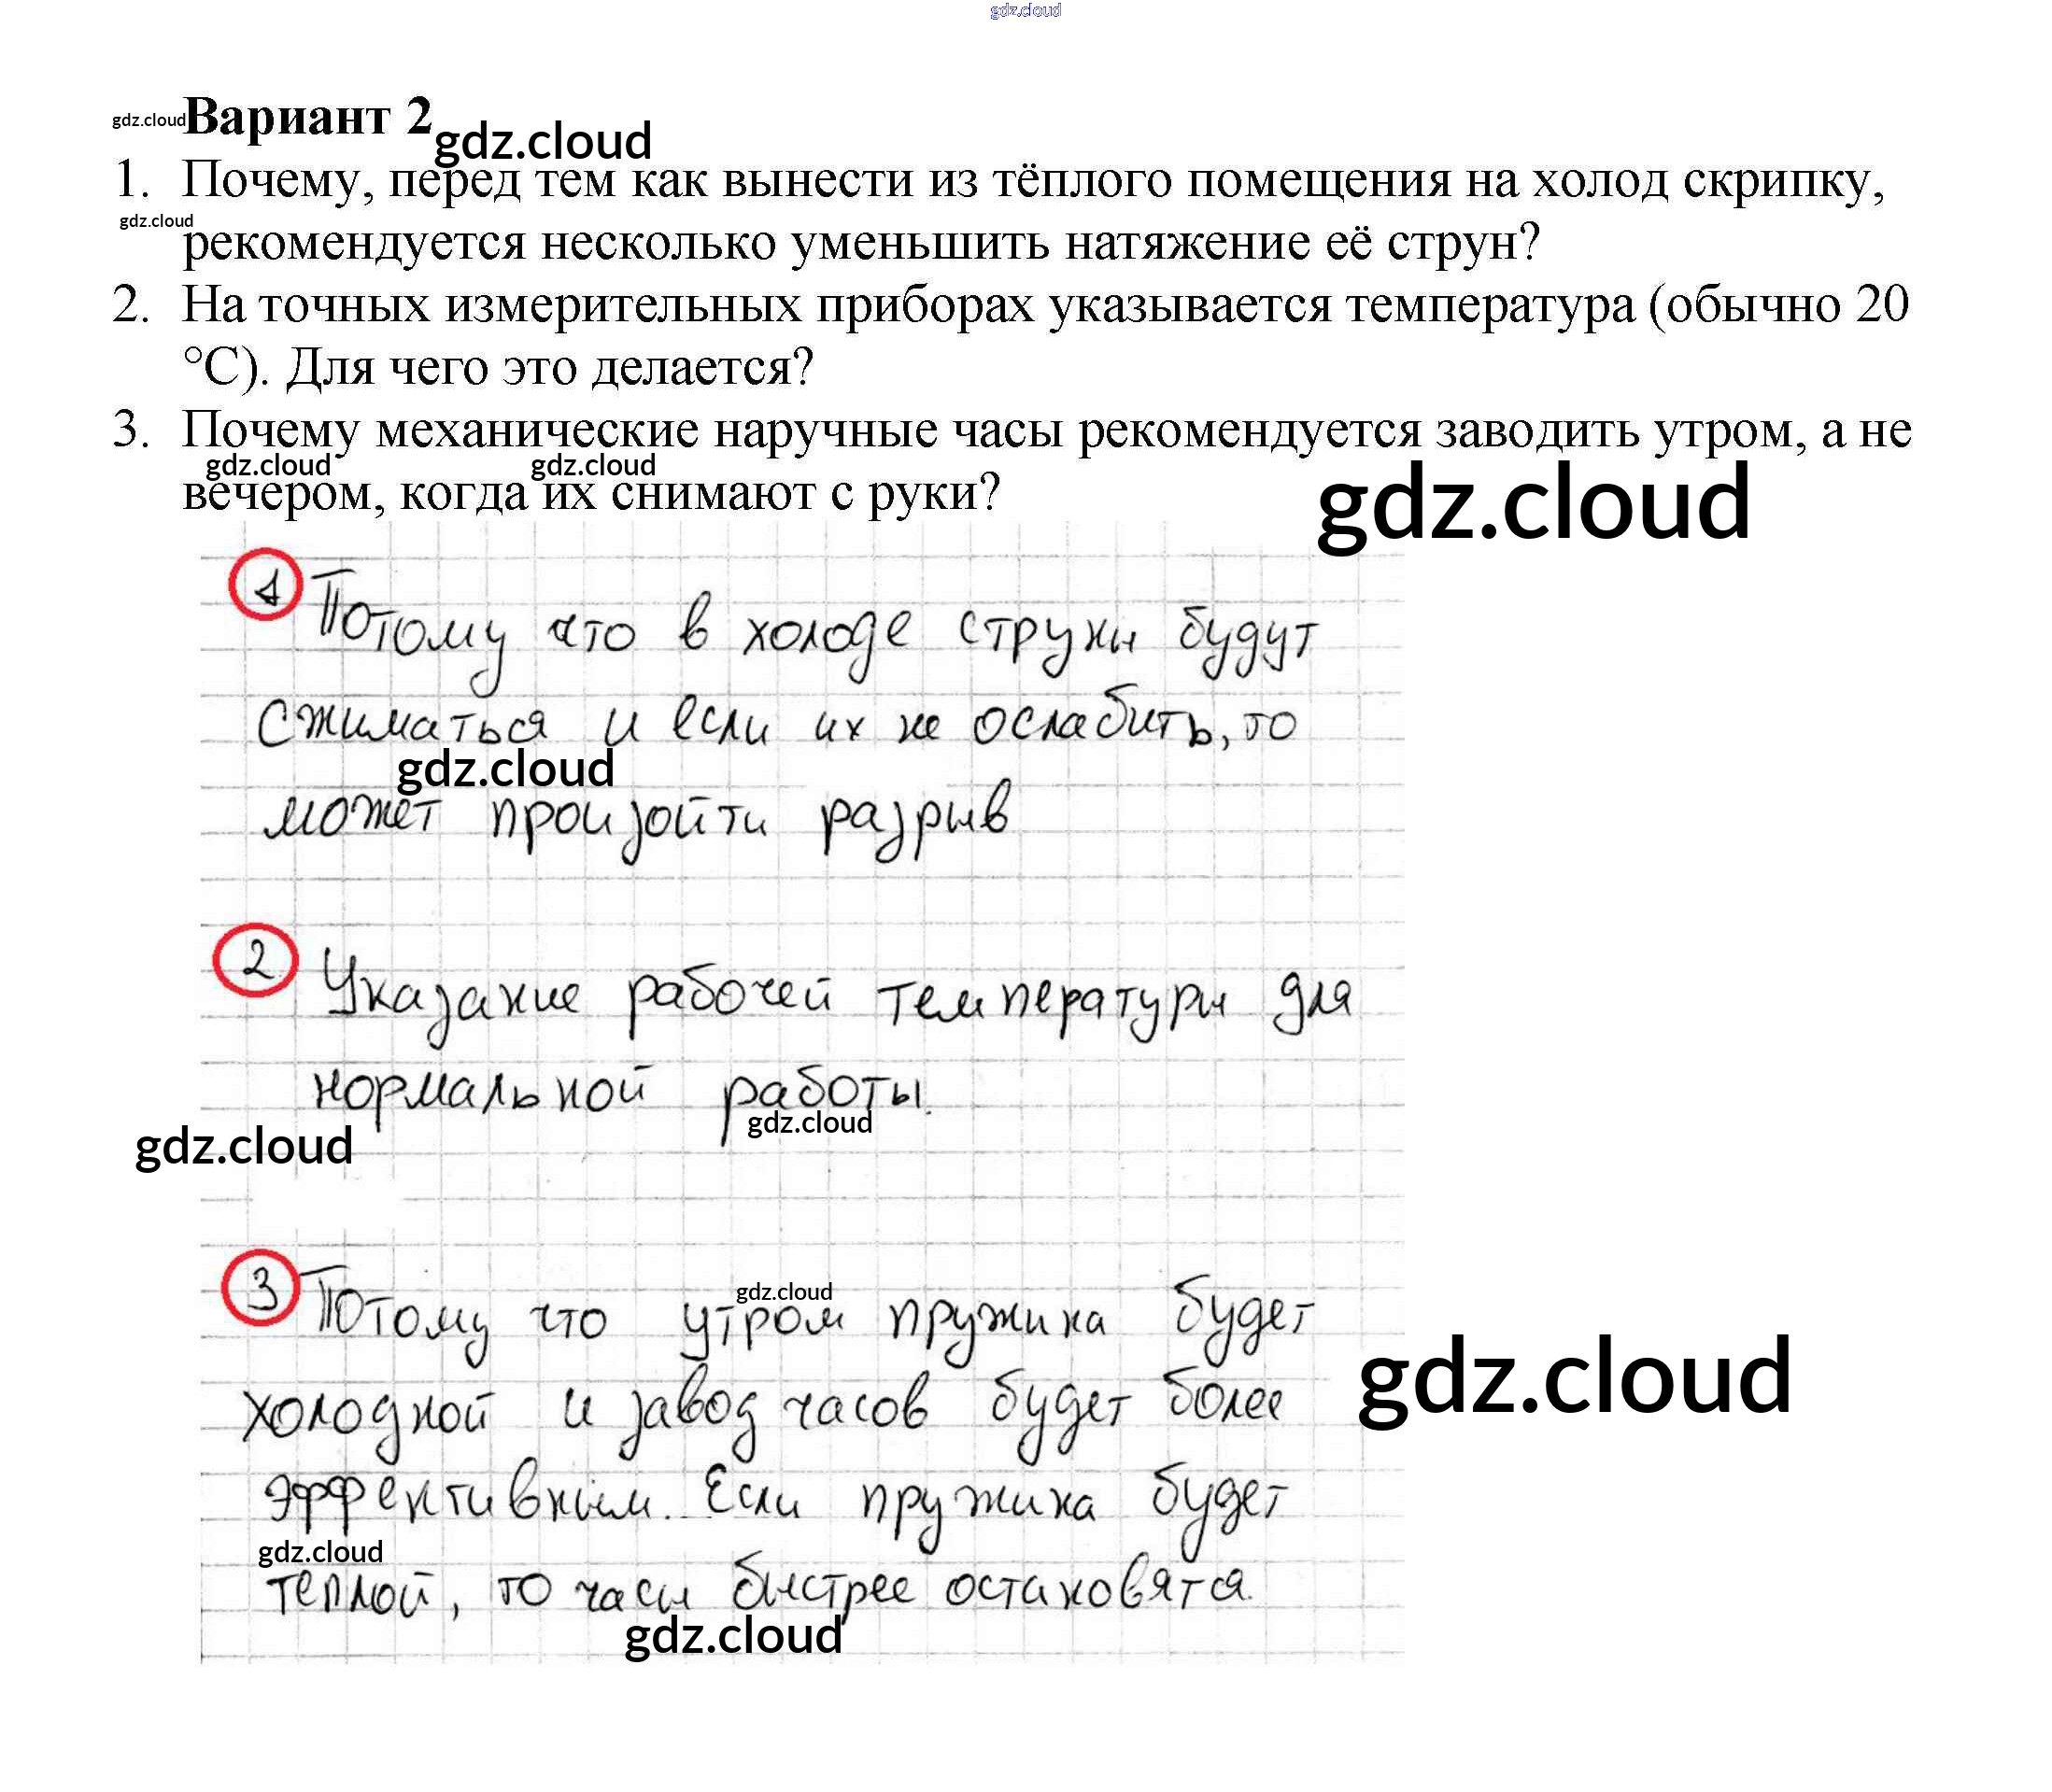 gdz.cloud
gdz.cloud Вариант 2 gdz.cloud
1. Почему, перед тем как вынести из тёплого помещения на холод скрипку,
gdz.cloud
рекомендуется несколько уменьшить натяжение её струн?
2. На точных измерительных приборах указывается температура (обычно 20
°С). Для чего это делается?
3. Почему механические наручные часы рекомендуется заводить утром, а не
gdz.cloud gdz.cloud
вечером, когда их снимают с руки?
gdz.cloud
1 Потому что в холоде струны будут
сжиматься и если их не ослабить, то
gdz.cloud
может произойти разрыв
2 Указание рабочей температуры для
нормальной работы.
gdz.cloud
gdz.cloud
gdz.cloud
3 Потому что утром пружина будет
gdz.cloud
холодной и завод часов будет более
эффективным. Если пружина будет
gdz.cloud
теплой, то часы быстрее остановятся.
gdz.cloud